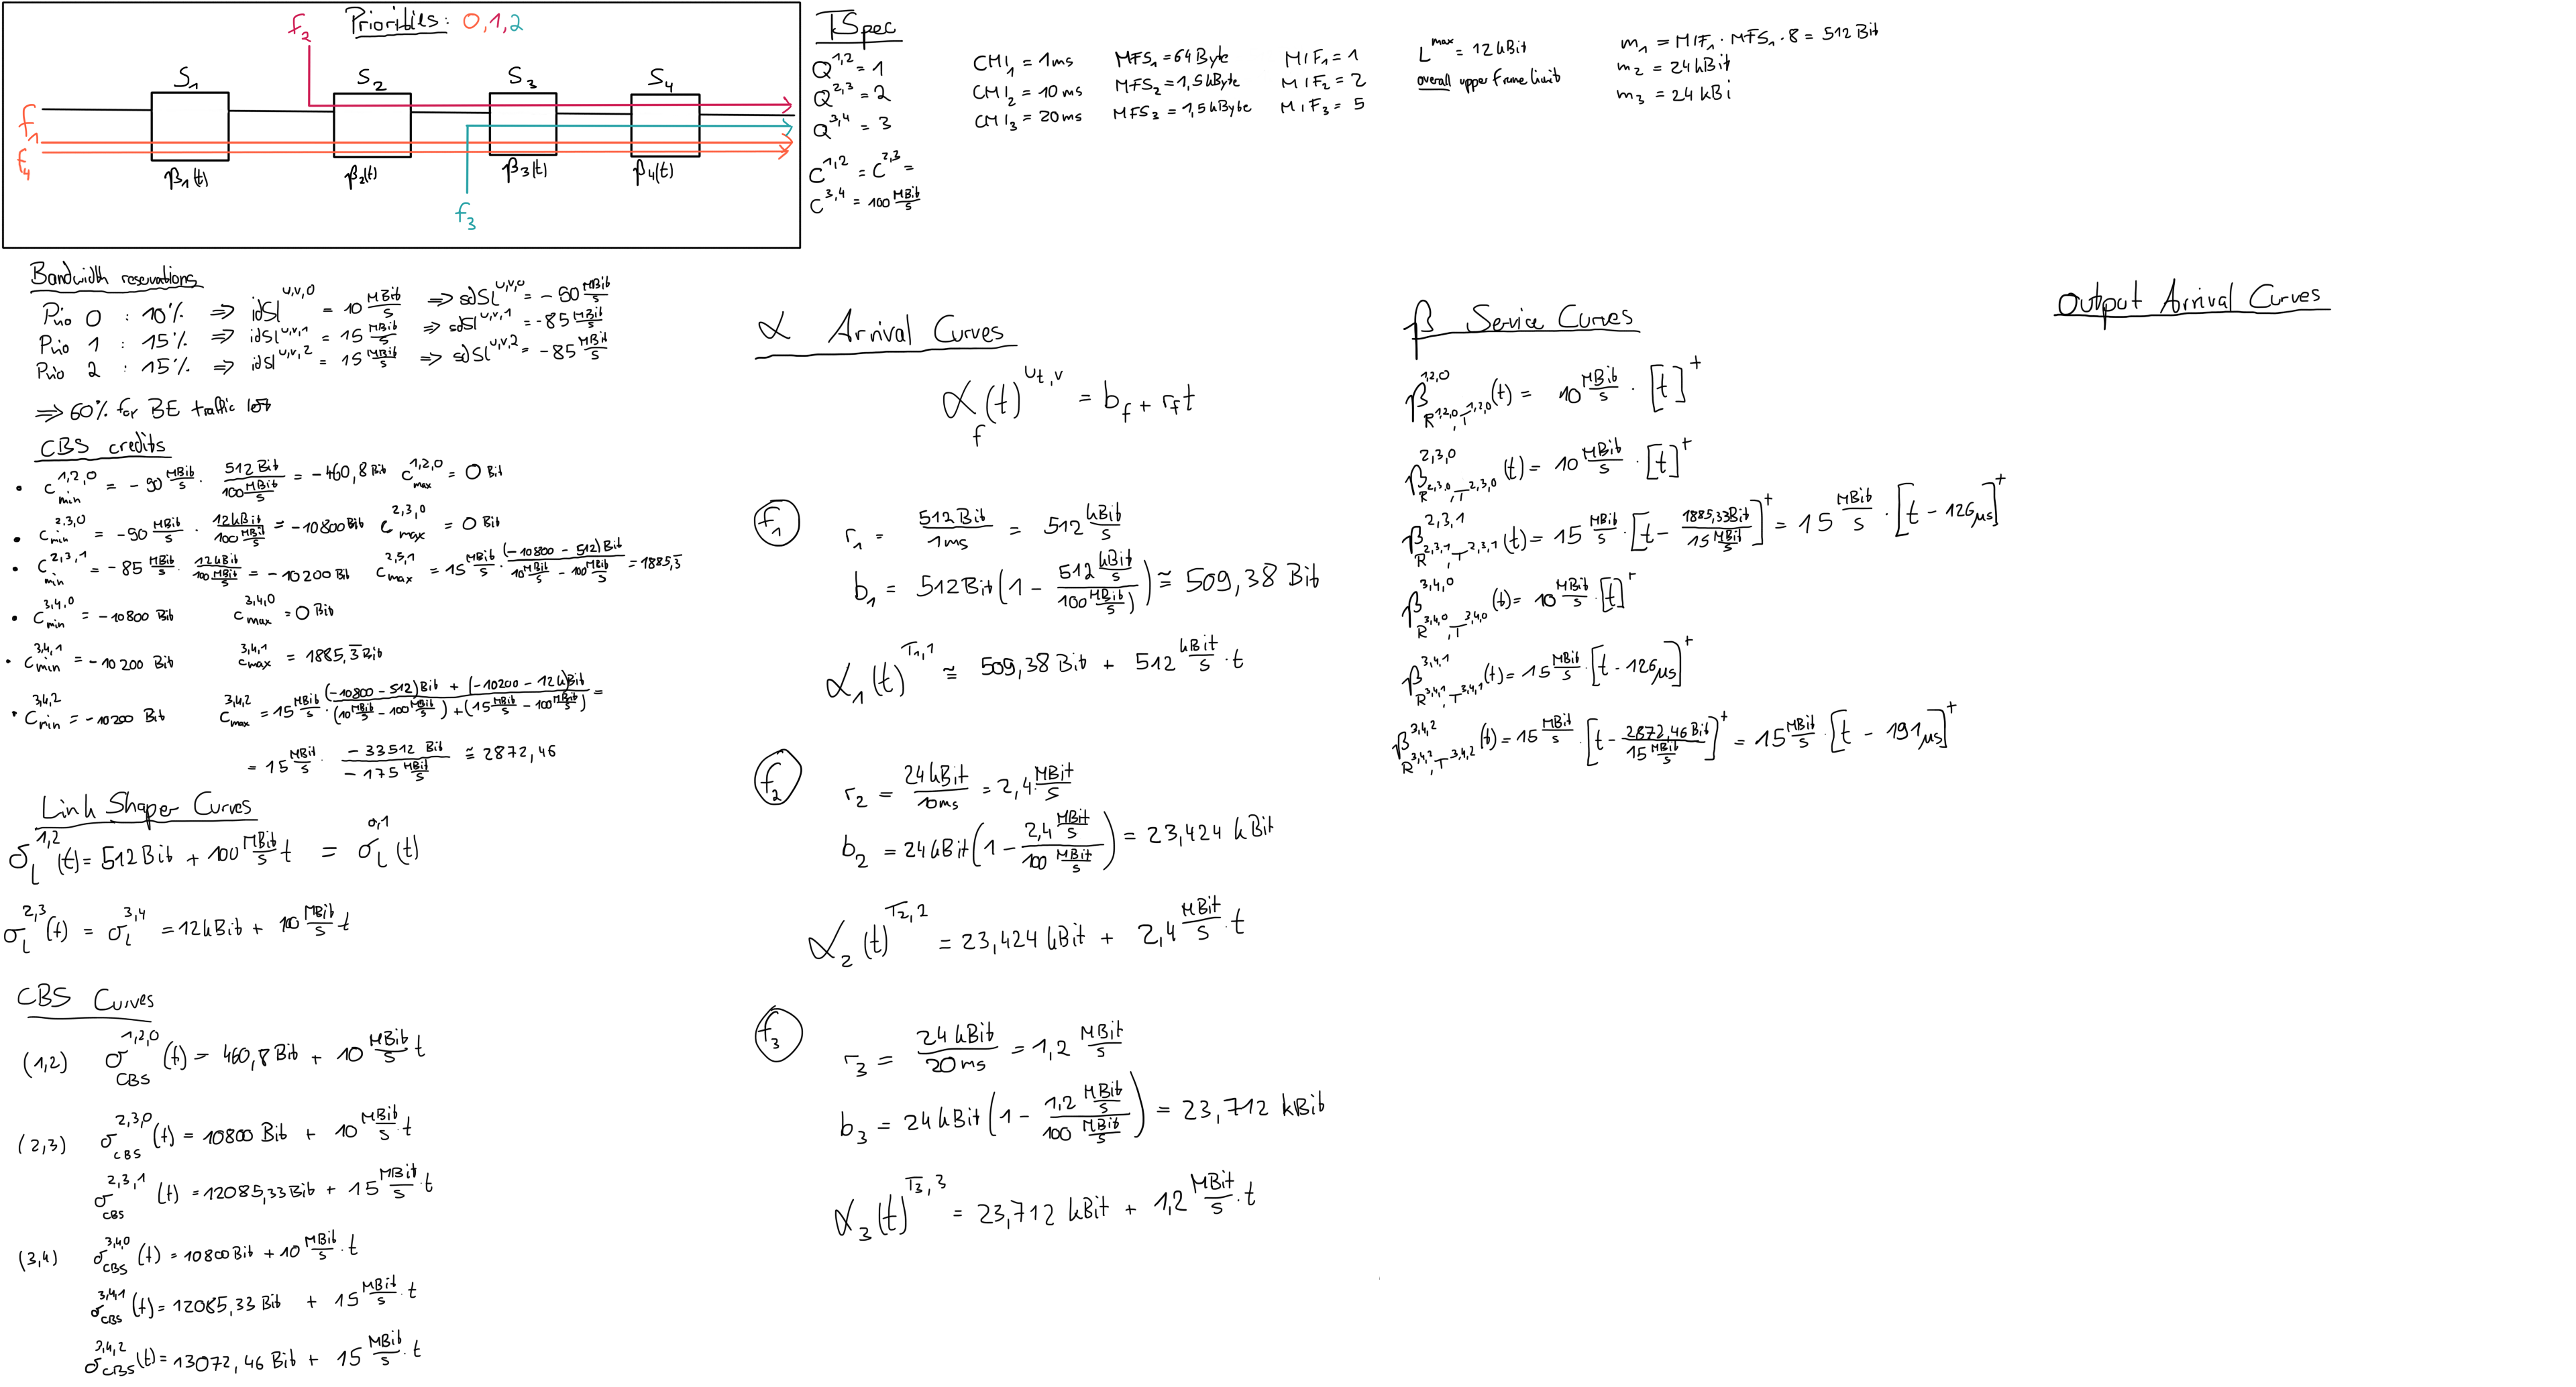 Priorities: 0,1,2
f₂
S₁ S₂ S₃ S₄
f₁
f₄
β₁(t) β₂(t) β₃(t) β₄(t)
f₃
TSpec
Q^{1,2} = 1
Q^{2,3} = 2
Q^{3,4} = 3
C^{1,2} = C^{2,3} =
C^{3,4} = 100 MBit/s
CMI₁ = 1ms MFS₁ = 64 Byte MIF₁ = 1
CMI₂ = 10 ms MFS₂ = 1,5 kByte MIF₂ = 2
CMI₃ = 20ms MFS₃ = 1,5 kByte MIF₃ = 5
L^{max} = 12 kBit
overall upper frame limit
m₁ = MIF₁ · MFS₁ · 8 = 512 Bit
m₂ = 24 kBit
m₃ = 24 kBi
Bandwidth reservations
Prio 0 : 10% ⇒ idSl^{u,v,0} = 10 MBit/s ⇒ sdSl^{u,v,0} = -90 MBit/s
Prio 1 : 15% ⇒ idSl^{u,v,1} = 15 MBit/s ⇒ sdSl^{u,v,1} = -85 MBit/s
Prio 2 : 15% ⇒ idSl^{u,v,2} = 15 MBit/s ⇒ sdSl^{u,v,2} = -85 MBit/s
⇒ 60% for BE traffic left
CBS credits
• c_{min}^{1,2,0} = -90 MBit/s · 512 Bit / 100 MBit/s = -460,8 Bit c_{max}^{1,2,0} = 0 Bit
• c_{min}^{2,3,0} = -90 MBit/s · 12 kBit / 100 MBit/s = -10800 Bit c_{max}^{2,3,0} = 0 Bit
• c_{min}^{2,3,1} = -85 MBit/s · 12 kBit / 100 MBit/s = -10200 Bit c_{max}^{2,3,1} = 15 MBit/s · (-10800 - 512) Bit / (10 MBit/s - 100 MBit/s) = 1885,3̅
• c_{min}^{3,4,0} = -10800 Bit c_{max}^{3,4,0} = 0 Bit
• c_{min}^{3,4,1} = -10 200 Bit c_{max}^{3,4,1} = 1885,3̅ Bit
• c_{min}^{3,4,2} = -10200 Bit c_{max}^{3,4,2} = 15 MBit/s · ((-10800 - 512) Bit + (-10200 - 12 k)Bit) / ((10 MBit/s - 100 MBit/s) + (15 MBit/s - 100 MBit/s)) =
= 15 MBit/s · -33512 Bit / -175 MBit/s ≅ 2872,46
Link Shaper Curves
σ_L^{1,2}(t) = 512 Bit + 100 MBit/s t = σ_L^{0,1}(t)
σ_L^{2,3}(t) = σ_L^{3,4} = 12 kBit + 100 MBit/s t
CBS Curves
(1,2) σ_{CBS}^{1,2,0}(t) = 460,8 Bit + 10 MBit/s t
(2,3) σ_{CBS}^{2,3,0}(t) = 10800 Bit + 10 MBit/s · t
σ_{CBS}^{2,3,1}(t) = 12085,33 Bit + 15 MBit/s · t
(3,4) σ_{CBS}^{3,4,0}(t) = 10800 Bit + 10 MBit/s · t
σ_{CBS}^{3,4,1}(t) = 12085,33 Bit + 15 MBit/s · t
σ_{CBS}^{3,4,2}(t) = 13072,46 Bit + 15 MBit/s · t
α Arrival Curves
α_f(t)^{u_t,v} = b_f + r_f t
f₁
r₁ = 512 Bit / 1ms = 512 kBit/s
b₁ = 512 Bit (1 - 512 kBit/s / 100 MBit/s) ≅ 509,38 Bit
α₁(t)^{T₁,1} ≅ 509,38 Bit + 512 kBit/s · t
f₂
r₂ = 24 kBit / 10ms = 2,4 MBit/s
b₂ = 24 kBit (1 - 2,4 MBit/s / 100 MBit/s) = 23,424 kBit
α₂(t)^{T₂,2} = 23,424 kBit + 2,4 MBit/s · t
f₃
r₃ = 24 kBit / 20 ms = 1,2 MBit/s
b₃ = 24 kBit (1 - 1,2 MBit/s / 100 MBit/s) = 23,712 kBit
α₃(t)^{T₃,3} = 23,712 kBit + 1,2 MBit/s · t
β Service Curves
β^{1,2,0}_{R^{1,2,0},T^{1,2,0}}(t) = 10 MBit/s · [t]⁺
β^{2,3,0}_{R^{2,3,0},T^{2,3,0}}(t) = 10 MBit/s · [t]⁺
β^{2,3,1}_{R^{2,3,1},T^{2,3,1}}(t) = 15 MBit/s · [t - 1885,33 Bit / 15 MBit/s]⁺ = 15 MBit/s · [t - 126µs]⁺
β^{3,4,0}_{R^{3,4,0},T^{3,4,0}}(t) = 10 MBit/s · [t]⁺
β^{3,4,1}_{R^{3,4,1},T^{3,4,1}}(t) = 15 MBit/s · [t - 126µs]⁺
β^{3,4,2}_{R^{3,4,2},T^{3,4,2}}(t) = 15 MBit/s · [t - 2872,46 Bit / 15 MBit/s]⁺ = 15 MBit/s · [t - 191µs]⁺
Output Arrival Curves